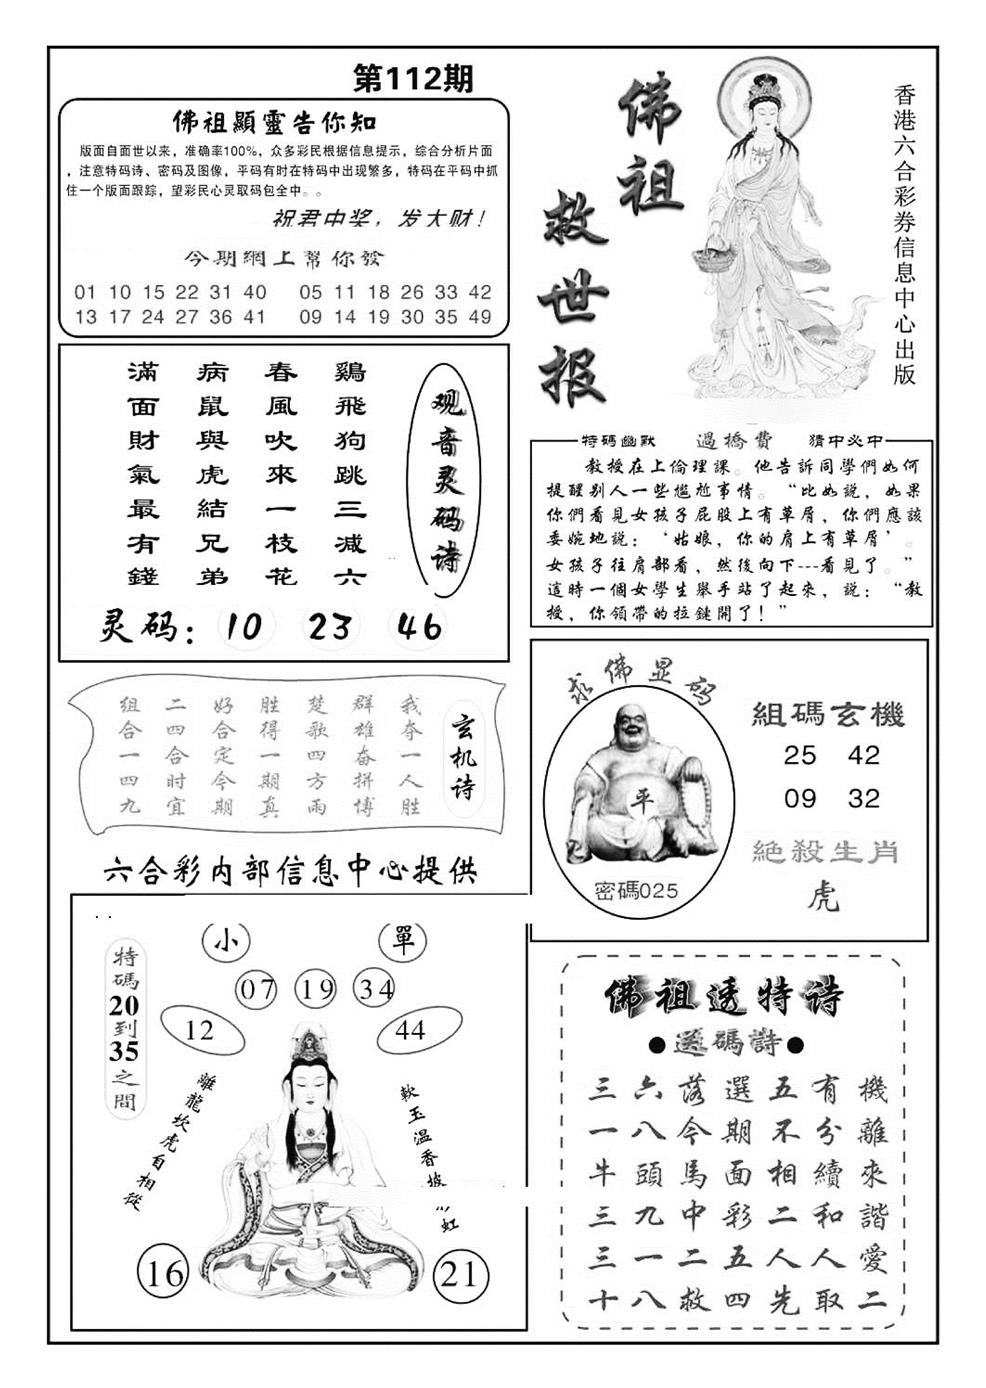 第112期
佛祖顯靈告你知
版面自面世以来，准确率100%，众多彩民根据信息提示，综合分析片面
，注意特码诗、密码及图像，平码有时在特码中出现繁多，特码在平码中抓
住一个版面跟踪，望彩民心灵取码包全中。。
祝君中奖，发大财！
今期網上幫你發
01 10 15 22 31 40 05 11 18 26 33 42
13 17 24 27 36 41 09 14 19 30 35 49
佛祖
救世报
香港六合彩券信息中心出版
观音灵码诗
鷄飛狗跳三减六
春風吹來一枝花
病鼠與虎結兄弟
滿面財氣最有錢
灵码：10 23 46
特碼幽默 過橋費 猜中必中
教授在上倫理課。他告訴同學們如何
提醒别人一些尴尬事情。“比如説，如果
你們看見女孩子屁股上有草屑，你們應該
委婉地説：‘姑娘，你的肩上有草屑’。
女孩子往肩部看，然後向下---看見了。”
這時一個女學生舉手站了起來，説：“教
授，你領帶的拉鏈開了！”
玄机诗
我夺一人胜
群雄奋拼博
楚歌四方雨
胜得一期真
好合定今期
二四合时宜
组合一四九
六合彩内部信息中心提供
求佛显码
平
密碼025
組碼玄機
25 42
09 32
絶殺生肖
虎
特碼20到35之間
小 單
07 19 34
12 44
離龍坎虎自相從
軟玉温香披彩虹
16 21
佛祖透特诗
●送碼詩●
三六落選五有機
一八今期不分離
牛頭馬面相續來
三九中彩二和諧
三一二五人人愛
十八救四先取二